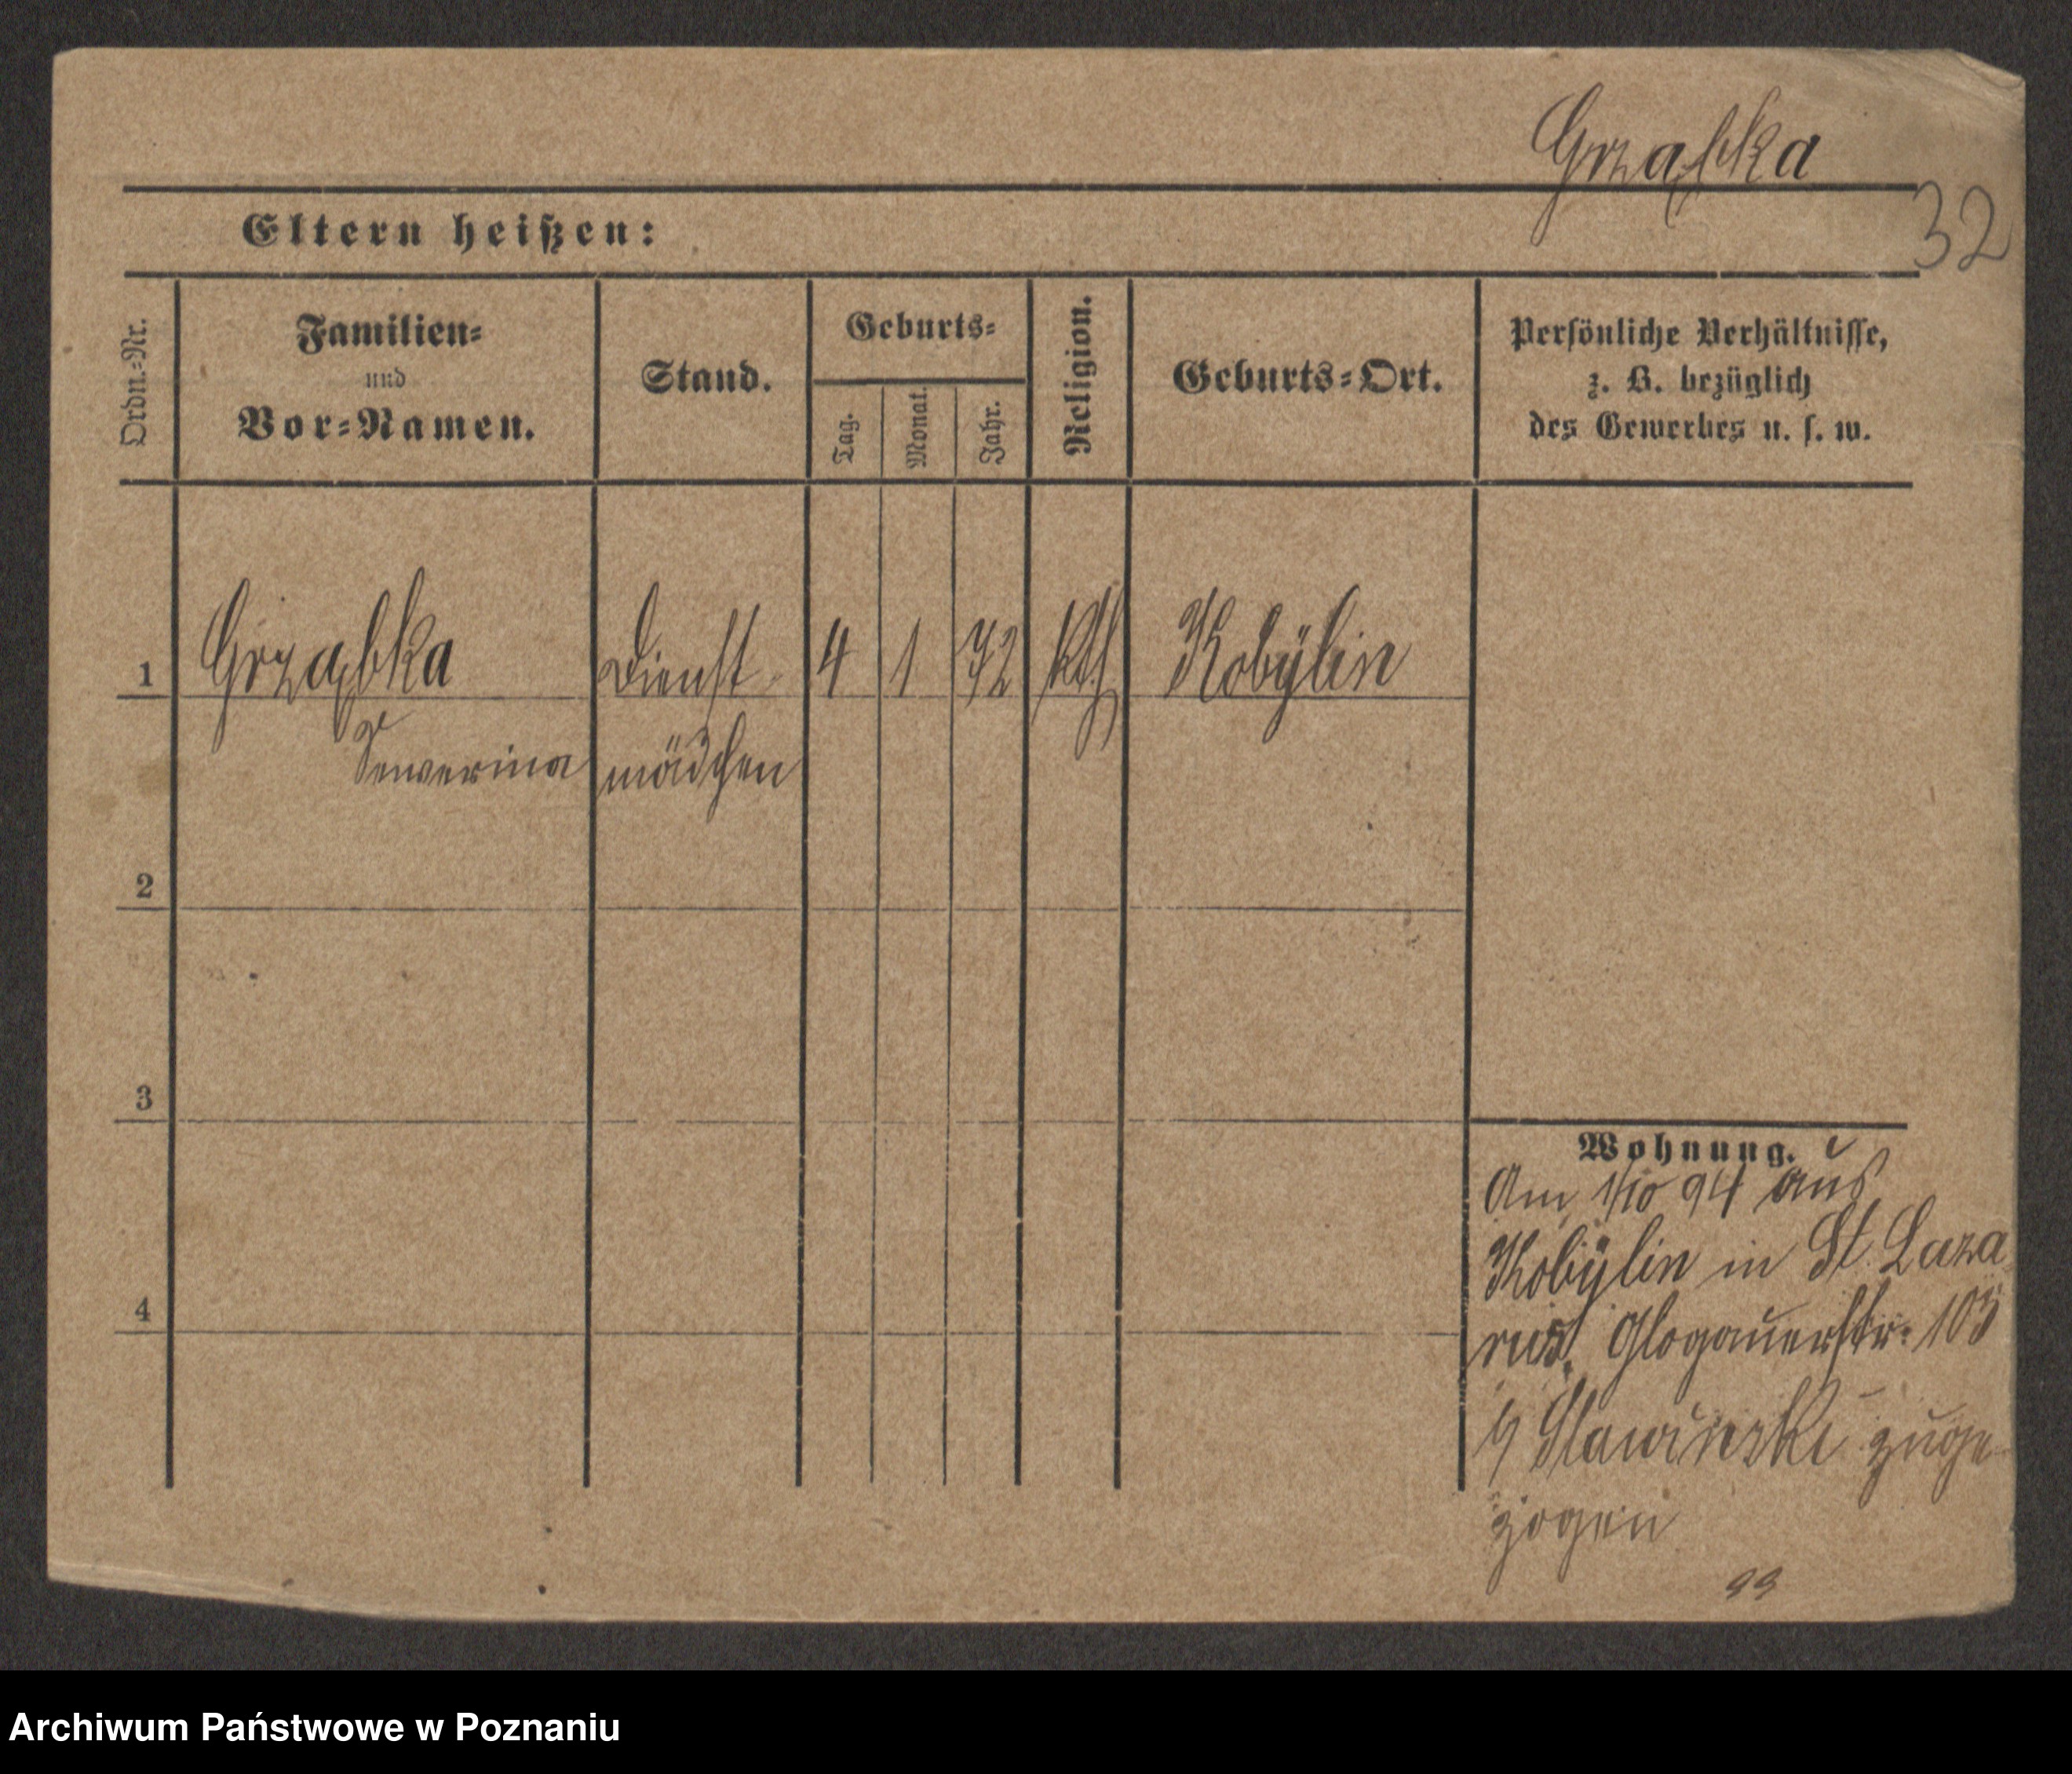 Grząbka
32
Eltern heißen:
Ordn.-Nr.
Familien-
und
Vor-Namen.
Stand.
Geburts-
Tag.
Monat.
Jahr.
Religion.
Geburts-Ort.
Persönliche Verhältnisse,
z. B. bezüglich
des Gewerbes u. s. w.
1 Grząbka Dienst 4 1 72 kth Kobylin
Sewerina mädchen
2
3
4
Wohnung.
Am 1/10 94 aus
Kobylin in St. Laza
rus, Glogauerstr. 103
Slawinski zuge
zogen
99
Archiwum Państwowe w Poznaniu